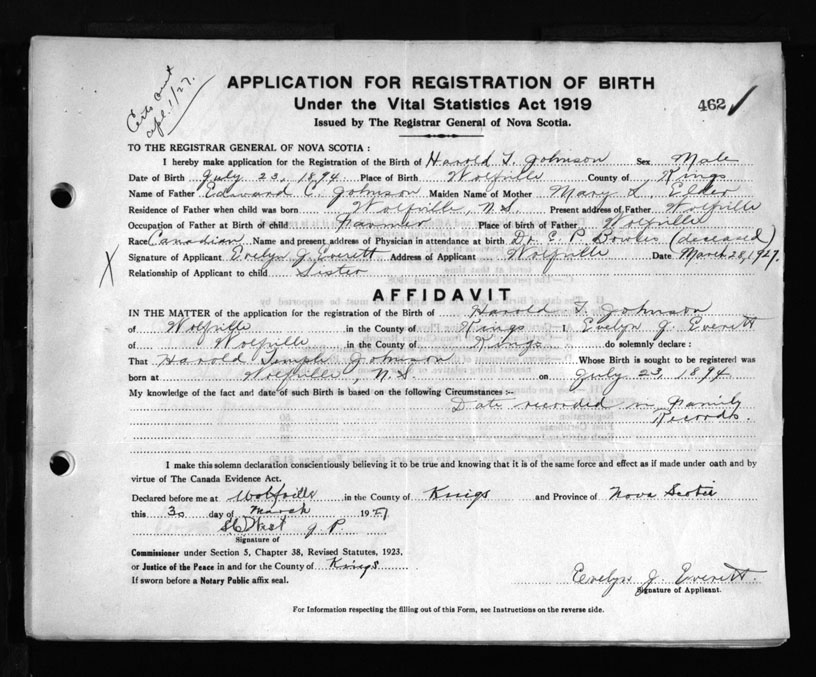 Certs sent
apl. 1/27.
APPLICATION FOR REGISTRATION OF BIRTH
Under the Vital Statistics Act 1919
462 ✓
Issued by The Registrar General of Nova Scotia.
TO THE REGISTRAR GENERAL OF NOVA SCOTIA :
I hereby make application for the Registration of the Birth of Harold T. Johnson Sex Male
Date of Birth July 23, 1894 Place of Birth Wolfville County of Kings
Name of Father Edward C. Johnson Maiden Name of Mother Mary L. Elder
Residence of Father when child was born Wolfville, N.S. Present address of Father Wolfville
Occupation of Father at Birth of child Farmer Place of birth of Father Wolfville
Race Canadian Name and present address of Physician in attendance at birth Dr. E. P. Bowles (deceased)
Signature of Applicant Evelyn J. Everett Address of Applicant Wolfville Date March 28, 1927.
X
Relationship of Applicant to child Sister
AFFIDAVIT
IN THE MATTER of the application for the registration of the Birth of Harold T. Johnson
of Wolfville in the County of Kings I Evelyn J. Everett
of Wolfville in the County of Kings do solemnly declare :
That Harold Temple Johnson Whose Birth is sought to be registered was
born at Wolfville, N.S. on July 23, 1894
My knowledge of the fact and date of such Birth is based on the following Circumstances :-
Date recorded in Family
Records.
I make this solemn declaration conscientiously believing it to be true and knowing that it is of the same force and effect as if made under oath and by
virtue of The Canada Evidence Act.
Declared before me at Wolfville in the County of Kings and Province of Nova Scotia
this 30 day of March 1927
West J. P.
Signature of
Commissioner under Section 5, Chapter 38, Revised Statutes, 1923.
or Justice of the Peace in and for the County of Kings
If sworn before a Notary Public affix seal.
Evelyn J. Everett.
Signature of Applicant.
For Information respecting the filling out of this Form, see Instructions on the reverse side.